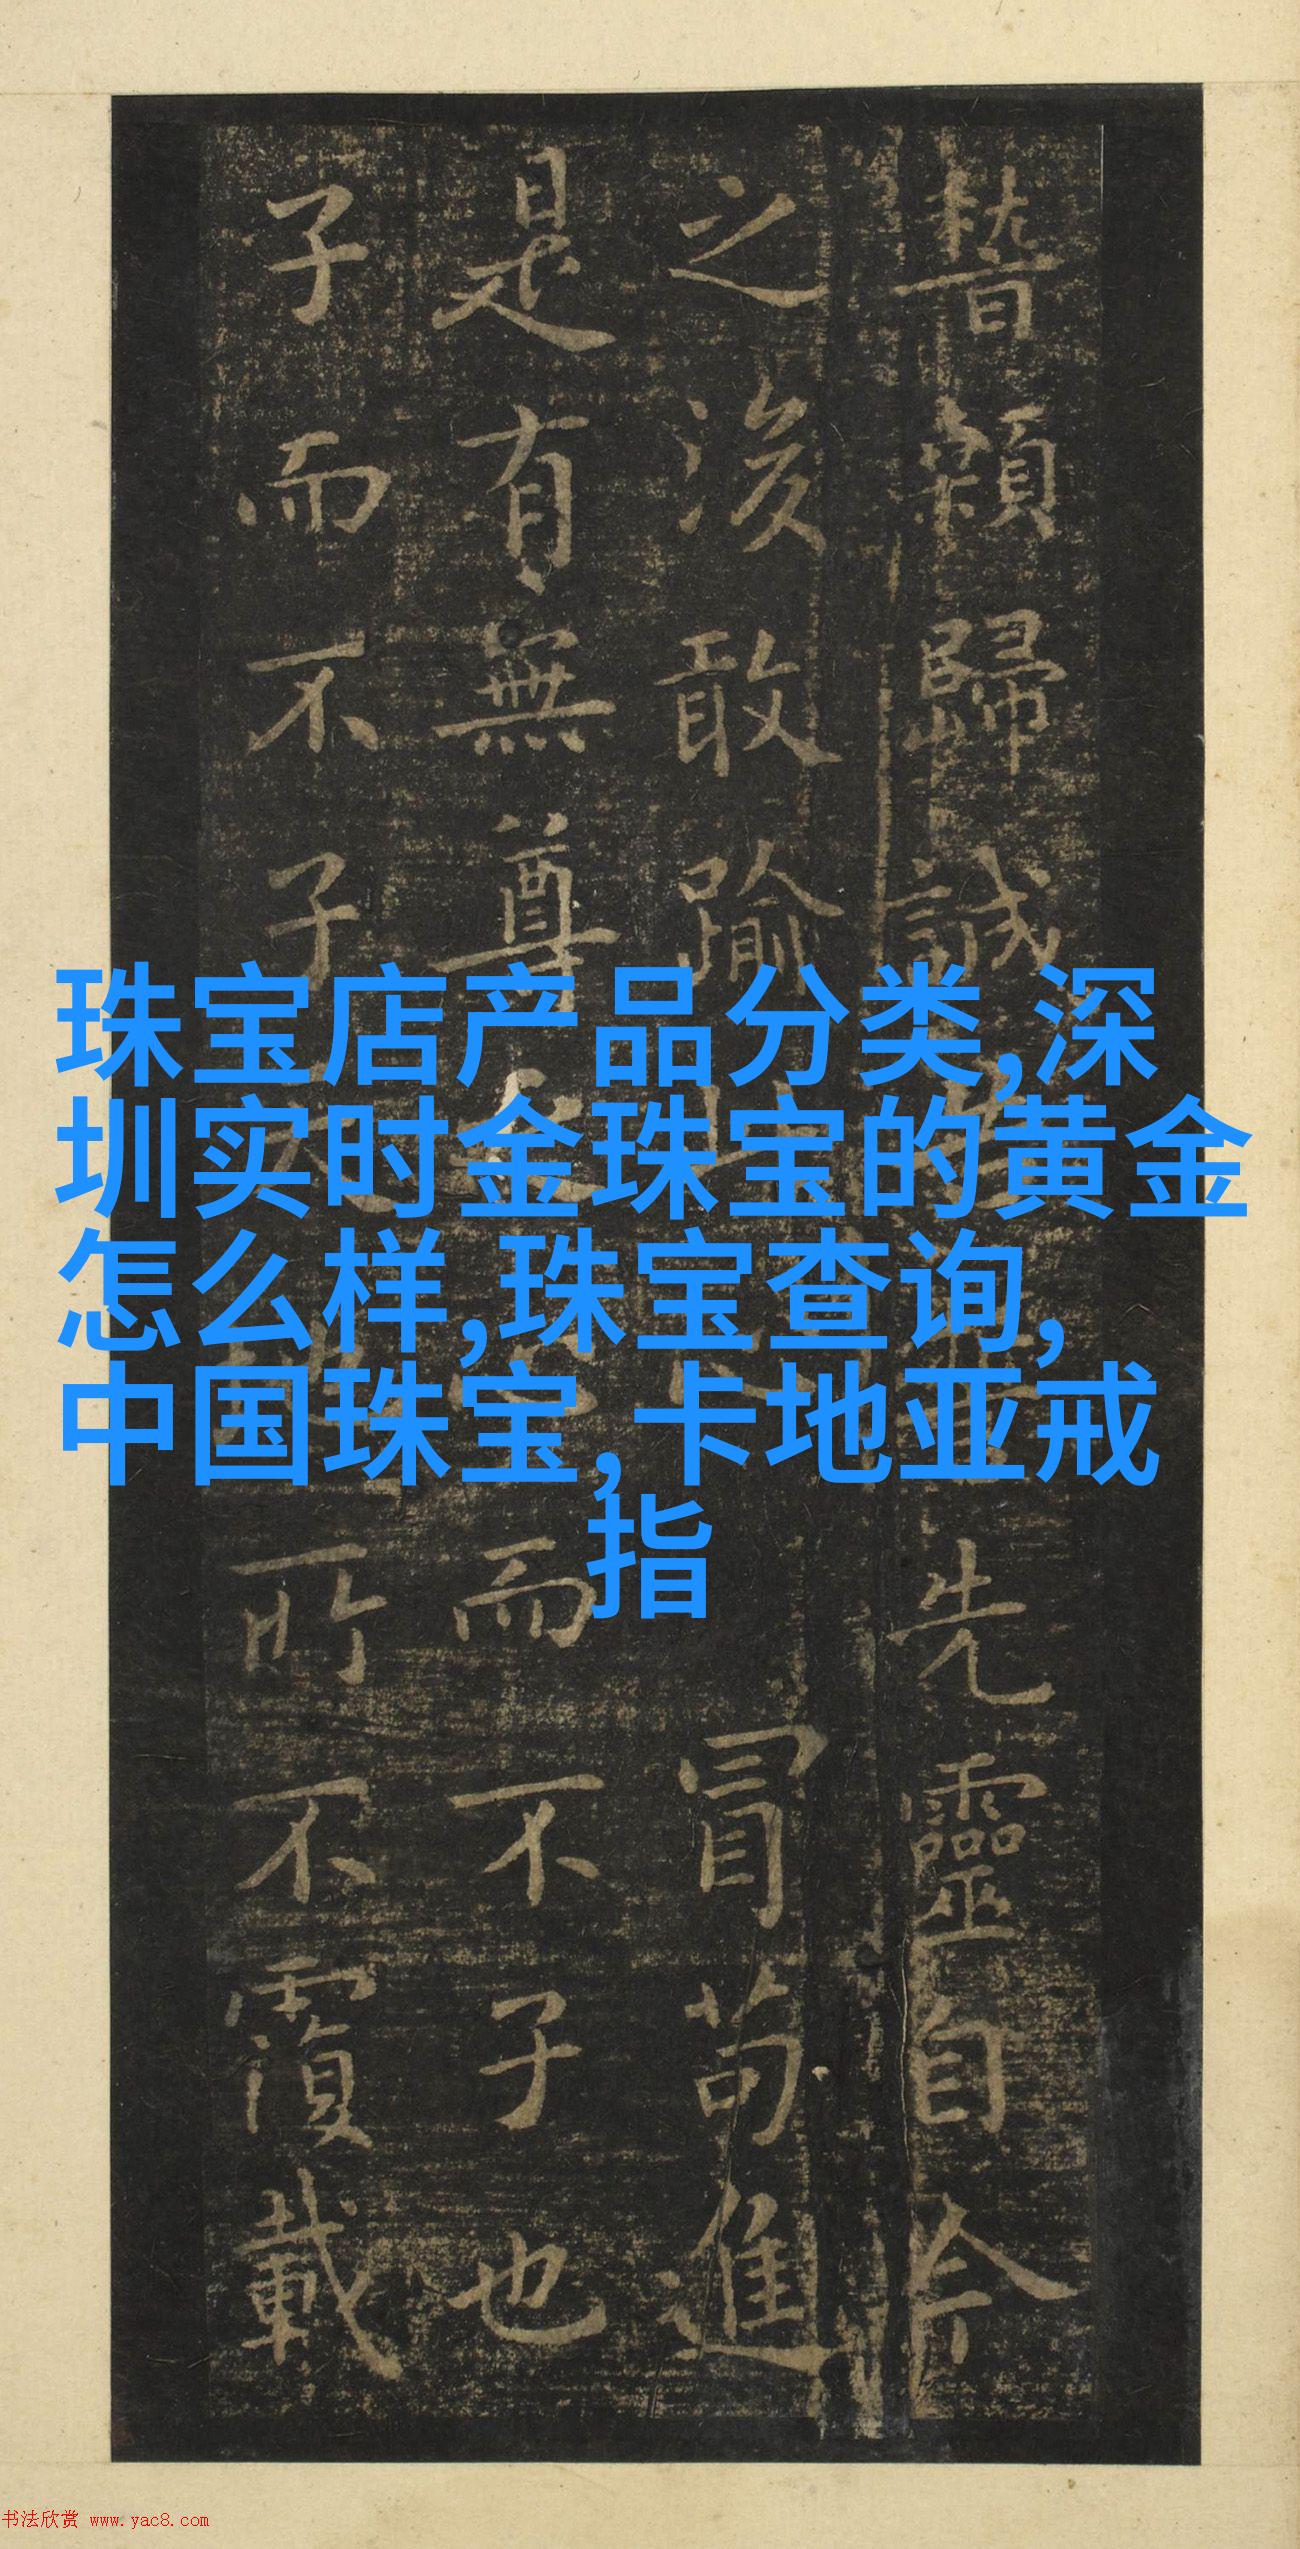 顙歸誠先靈自今
之後敢踰冒苟進
是有無尊而不子也
子而不子所不覆載
珠宝店产品分类,深
圳实时金珠宝的黄金
怎么样,珠宝查询,
中国珠宝,卡地亚戒
指
书法欣赏 www.yac8.com